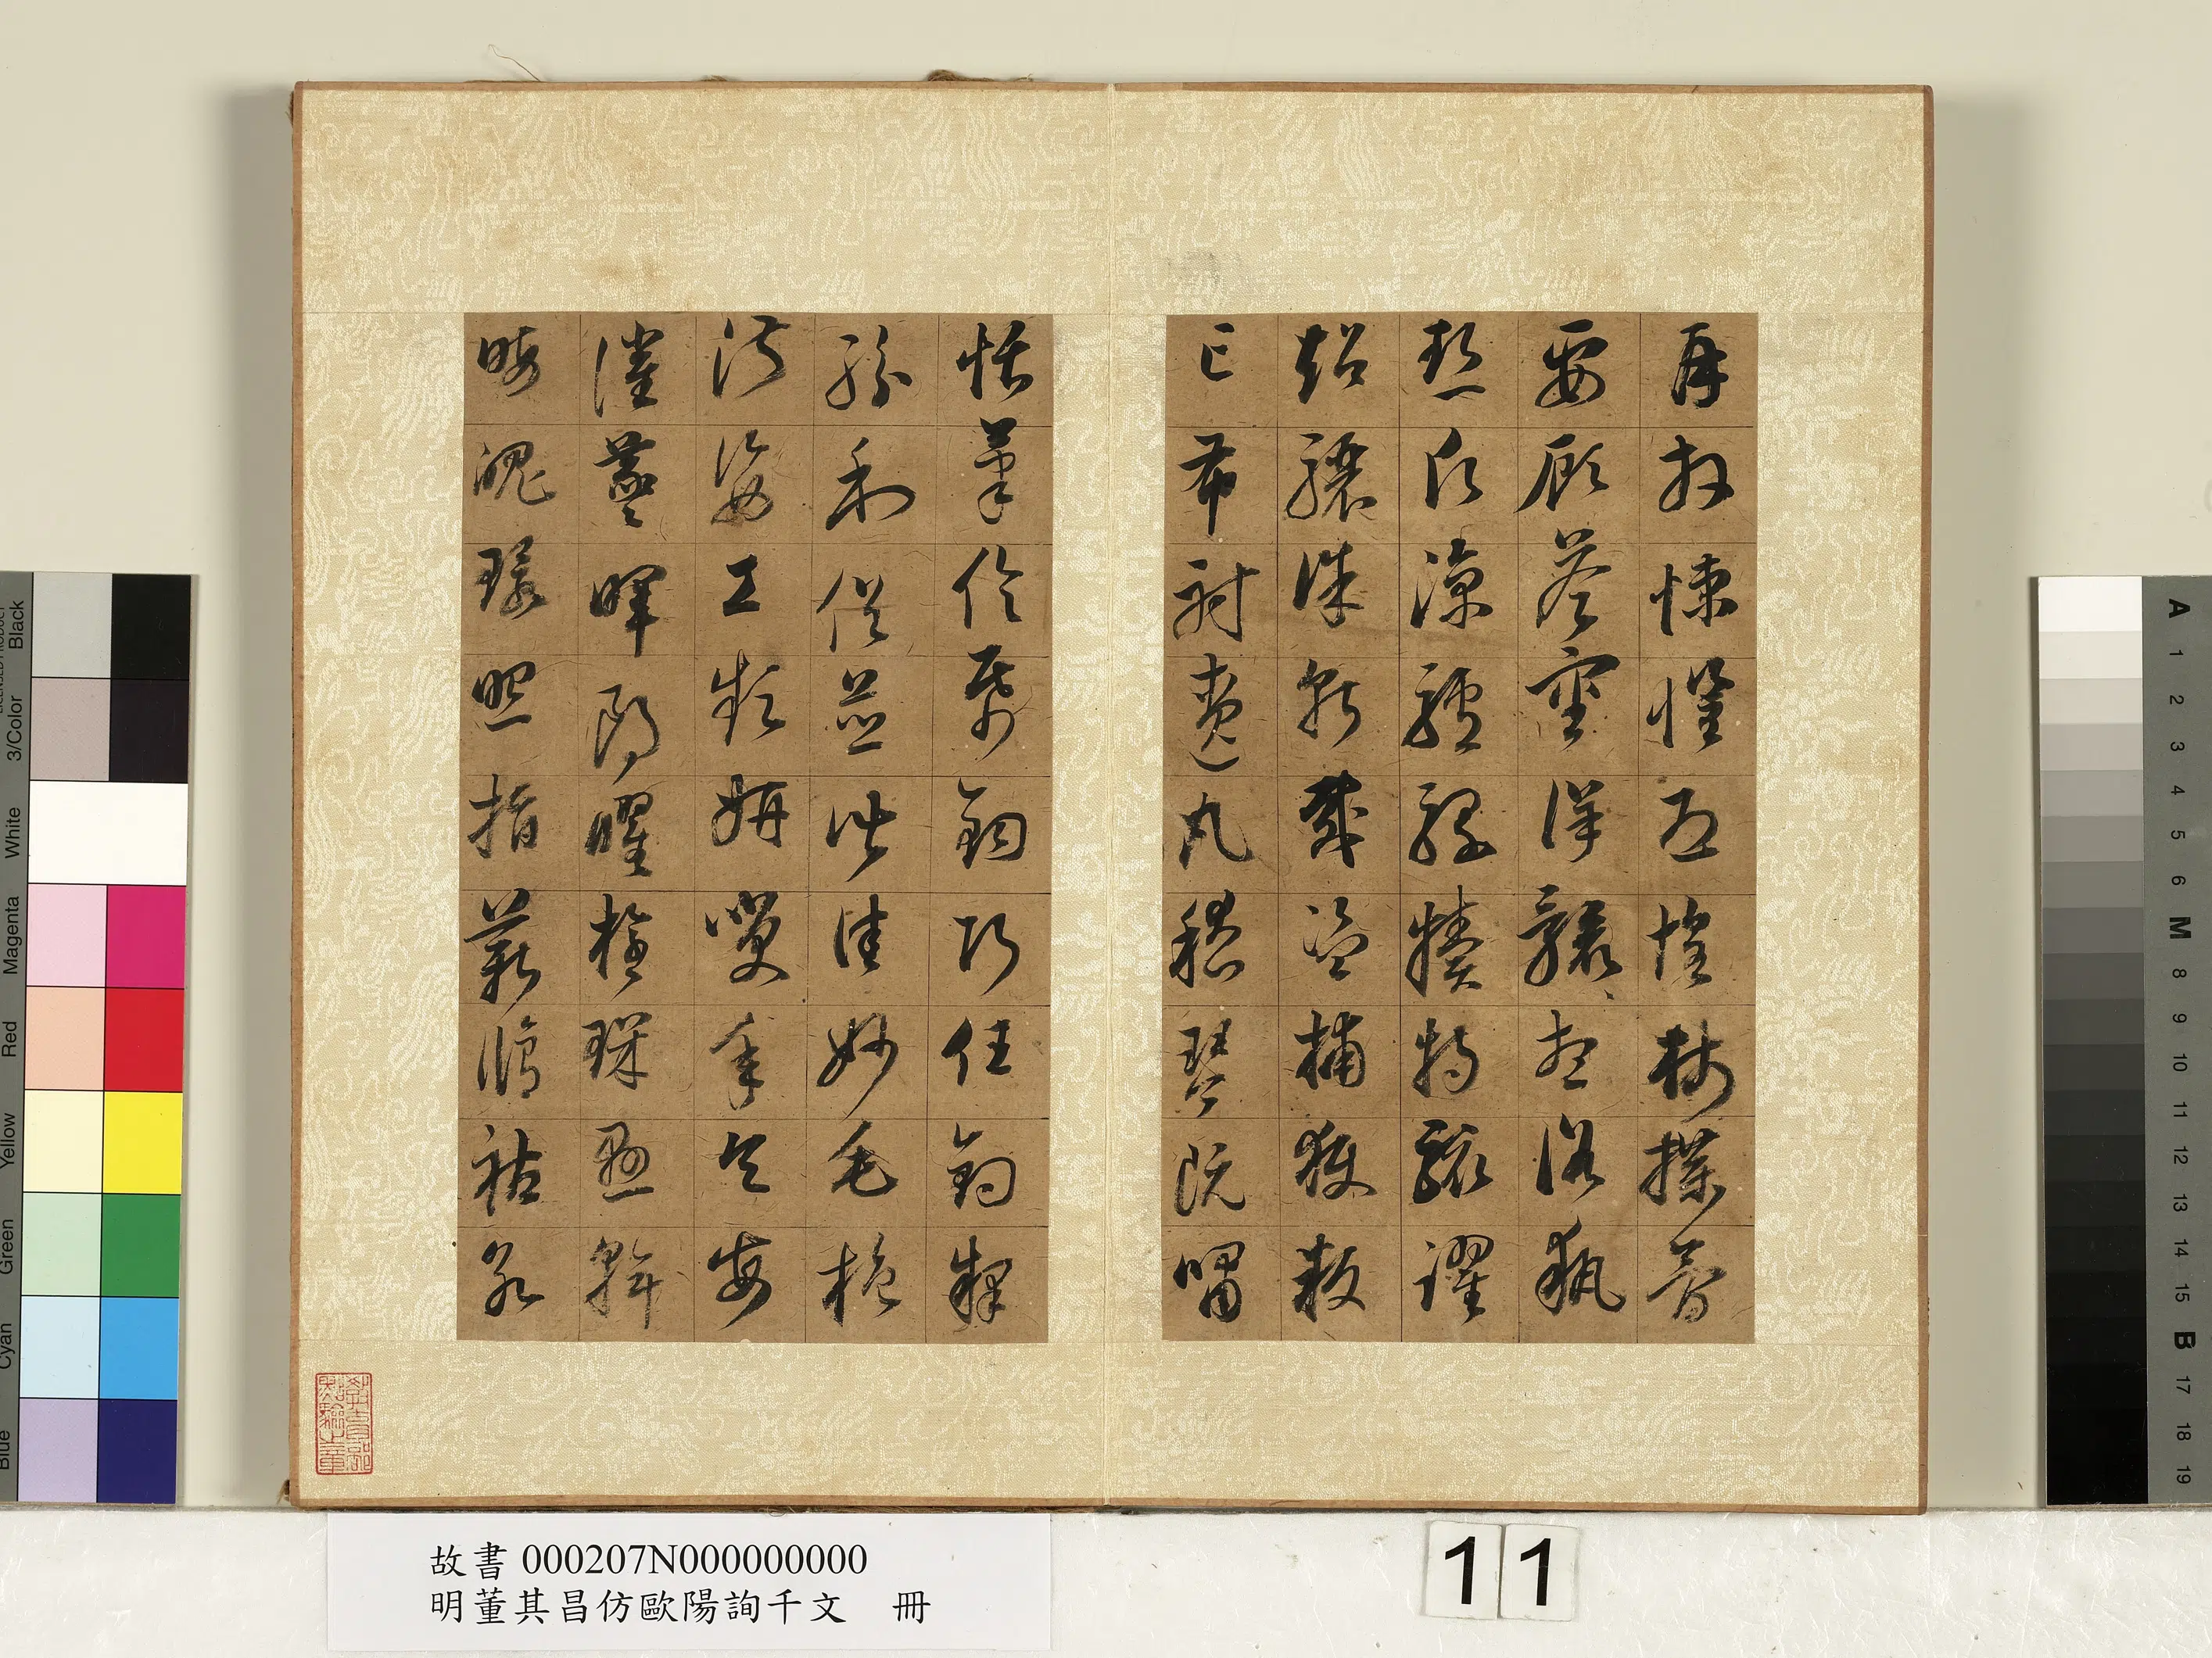 再拜悚懼恐惶牋牒簡
要顧答審詳骸想浴執
熱願涼驢騾犢特駭躍
超驤誅斬賊盜捕獲叛
亡布射遼丸嵇琴阮嘯
恬筆倫帋鈞巧任釣釋
紛利俗並皆佳妙毛施
淑姿工顰妍笑年矢每
催羲暉朗曜璇璣懸斡
晦魄環照指薪修祜永
故書 000207N000000000
明董其昌仿歐陽詢千文 冊
11
Black
3/Color
White
Magenta
Red
Yellow
Green
Cyan
Blue
A 1 2 3 4 5 6 M 8 9 10 11 12 13 14 15 B 17 18 19